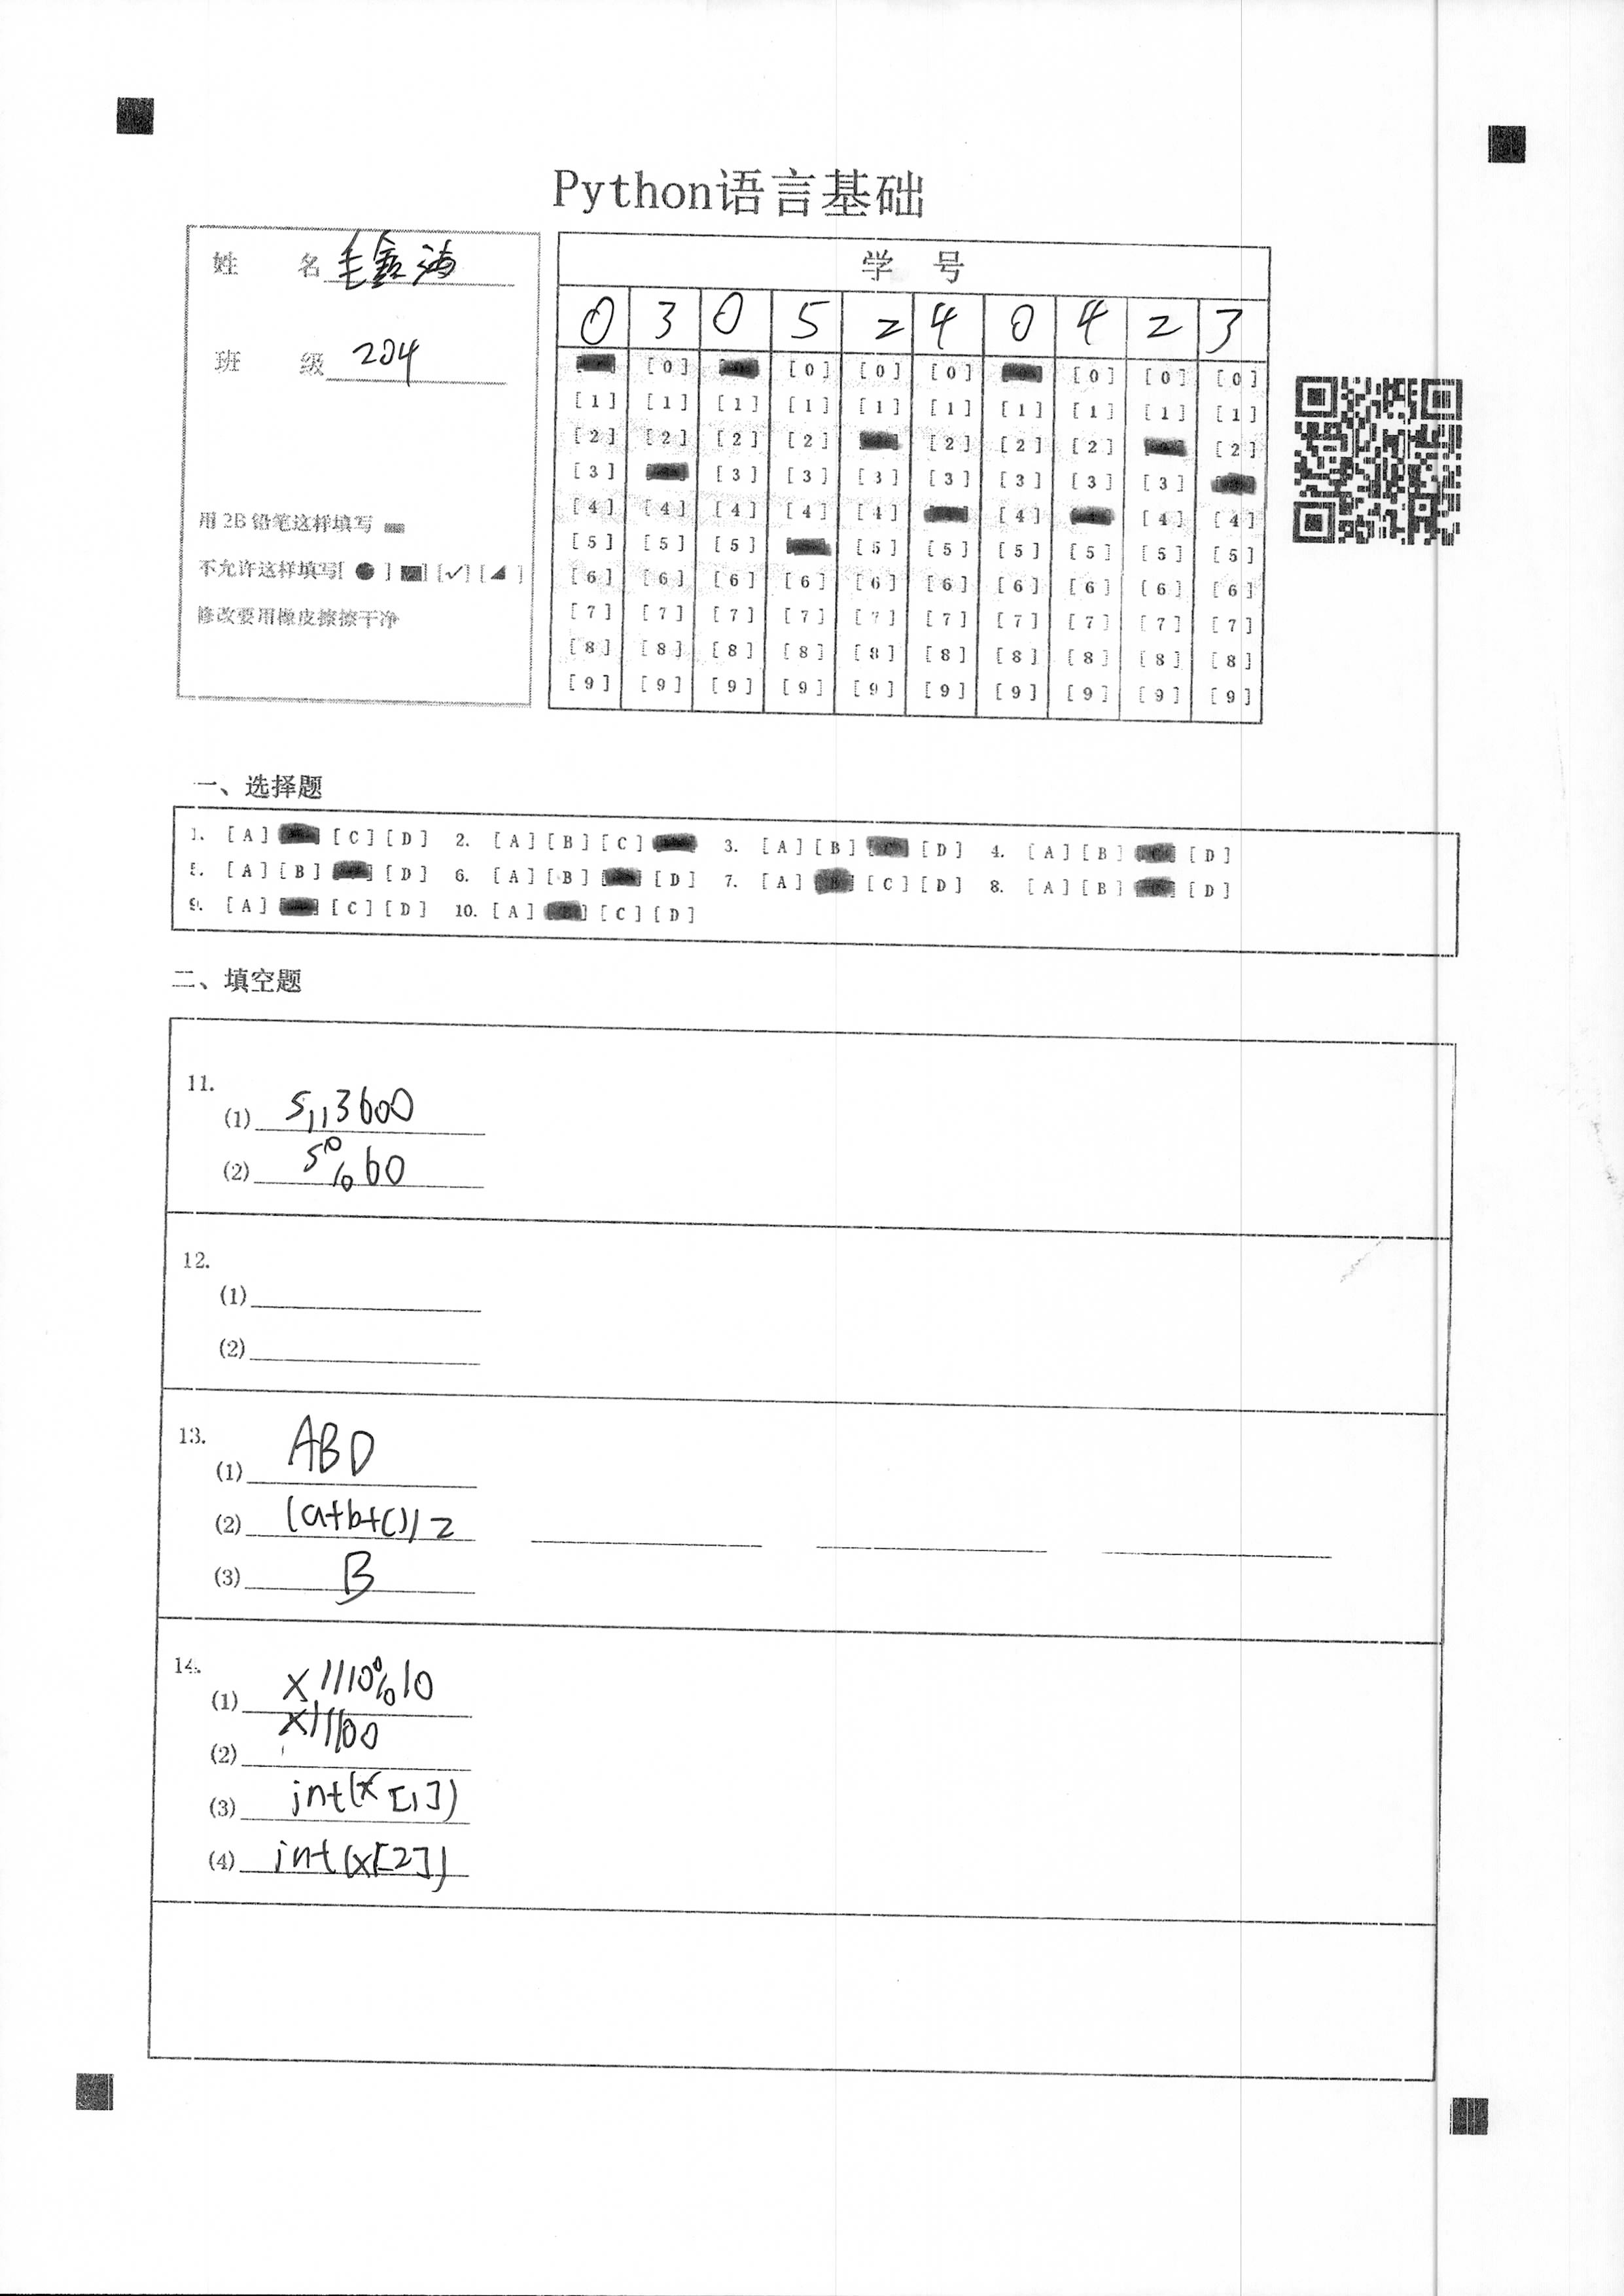 Python语言基础
姓 名 毛鑫海
班 级 204
用 2B 铅笔这样填写
不允许这样填写[ ● ] [■] [✓] [◢ ]
修改要用橡皮擦擦干净
学 号
0 3 0 5 2 4 0 4 2 3
[0] [0] [0] [0] [0] [0] [0]
[1] [1] [1] [1] [1] [1] [1] [1] [1] [1]
[2] [2] [2] [2] [2] [2] [2] [2]
[3] [3] [3] [3] [3] [3] [3] [3]
[4] [4] [4] [4] [4] [4] [4] [4]
[5] [5] [5] [5] [5] [5] [5] [5] [5]
[6] [6] [6] [6] [6] [6] [6] [6] [6] [6]
[7] [7] [7] [7] [7] [7] [7] [7] [7] [7]
[8] [8] [8] [8] [8] [8] [8] [8] [8] [8]
[9] [9] [9] [9] [9] [9] [9] [9] [9] [9]
一、选择题
1. [A] [C] [D] 2. [A] [B] [C] 3. [A] [B] [D] 4. [A] [B] [D]
5. [A] [B] [D] 6. [A] [B] [D] 7. [A] [C] [D] 8. [A] [B] [D]
9. [A] [C] [D] 10. [A] [C] [D]
二、填空题
11.
(1) s//3600
(2) s%60
12.
(1)
(2)
13.
(1) ABD
(2) (a+b+c)/2
(3) B
14.
(1) x//10%10
(2) x//100
(3) int(x[1])
(4) int(x[2])